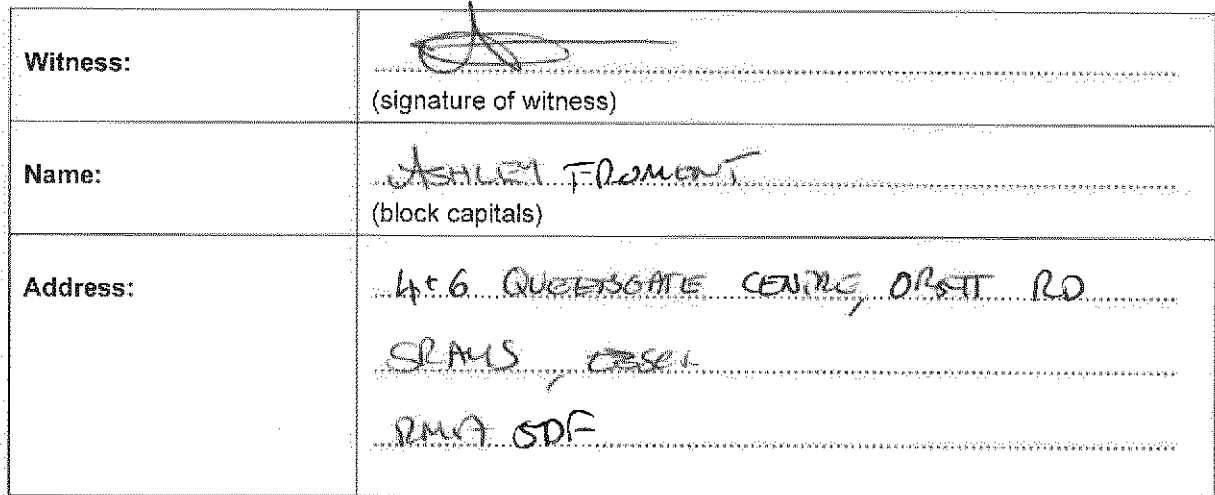 Witness:
(signature of witness)
Name:
ASHLEY FROMENT
(block capitals)
Address:
4+6 QUEENSGATE CENTRE, ORSETT RD
GRAYS, ESSEX
RM17 5DF